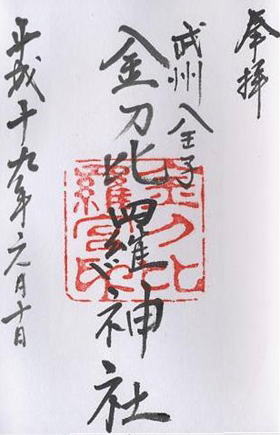 奉拝
武州八王子
金刀比羅神社
金刀比羅宮印
平成十九年元月十日